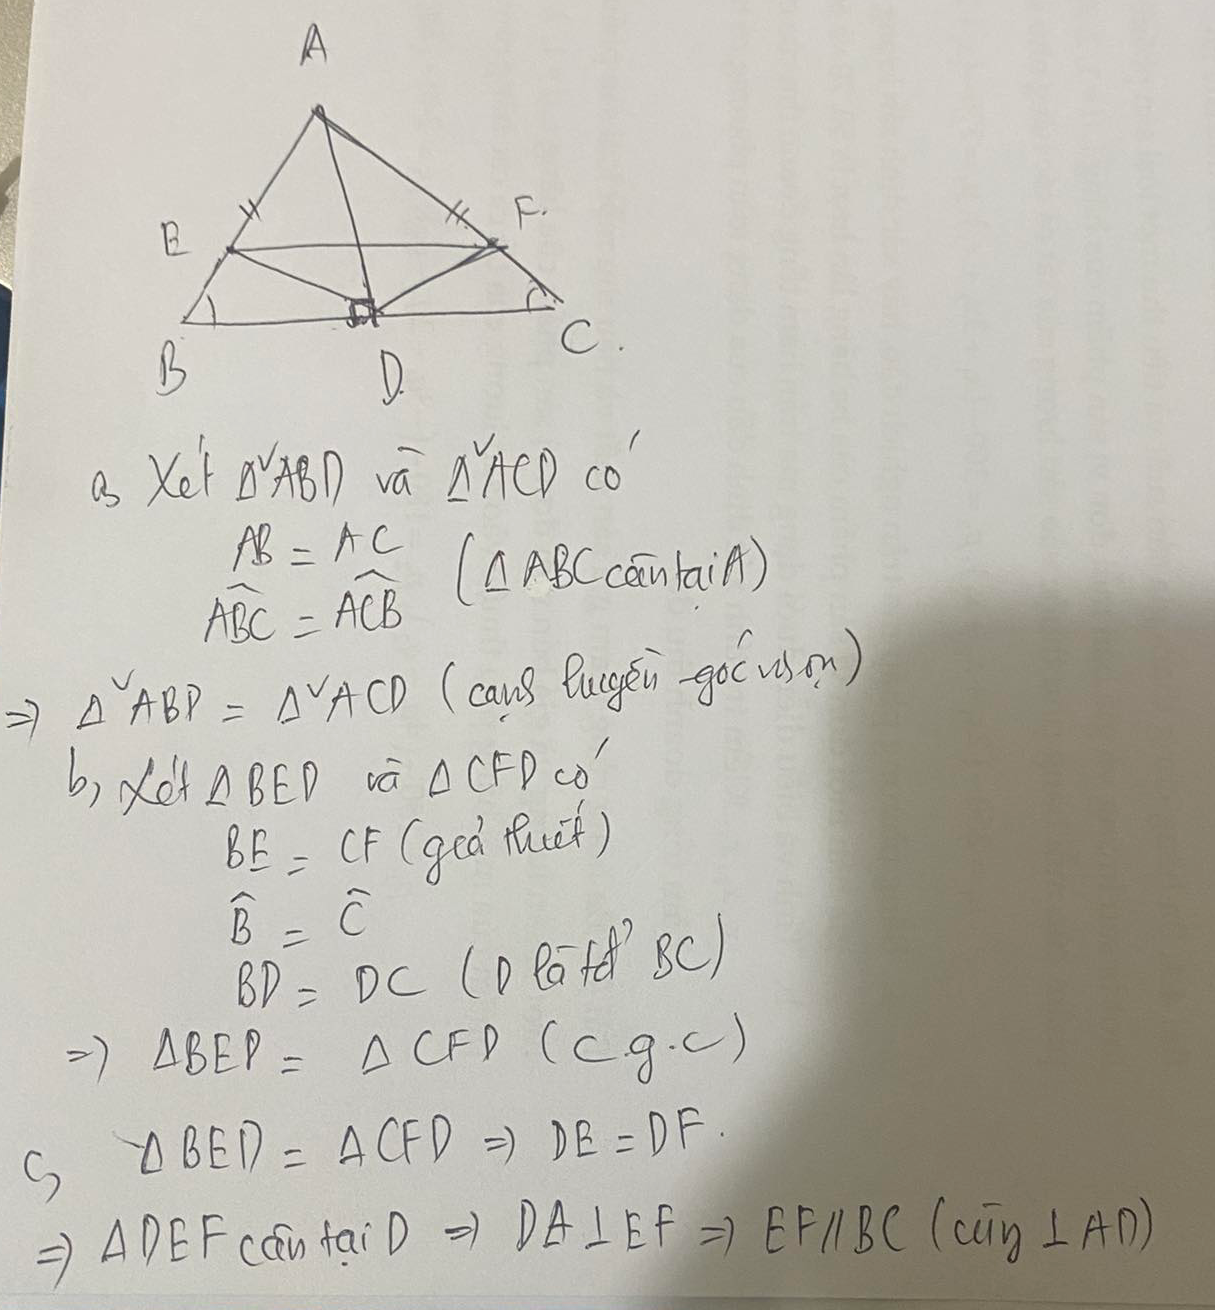 A
E
F.
B
D.
C.
a, Xét Δᵛ ABD và Δᵛ ACD có
AB = AC
(Δ ABC cân tại A)
ABC = ACB
=> Δᵛ ABD = Δᵛ ACD (cạnh huyền - góc nhọn)
b, Xét Δ BED và Δ CFD có
BE = CF (giả thiết)
B̂ = Ĉ
BD = DC (D là tđ' BC)
=> Δ BED = Δ CFD (c.g.c)
c, Δ BED = Δ CFD => DE = DF.
=> Δ DEF cân tại D => DA ⊥ EF => EF // BC (cùng ⊥ AD)